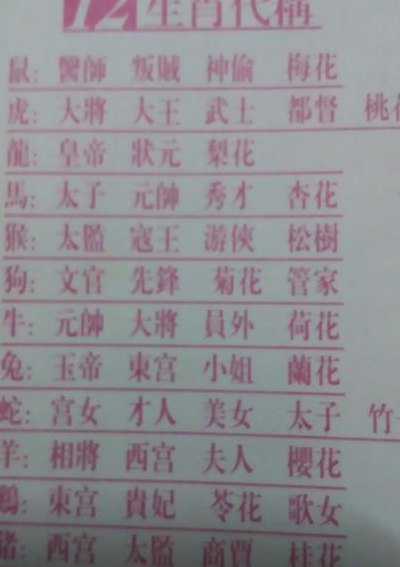 12生肖代稱
鼠: 醫師 叛賊 神偷 梅花
虎: 大將 大王 武士 都督 桃花
龍: 皇帝 狀元 梨花
馬: 太子 元帥 秀才 杏花
猴: 太監 寇王 游俠 松樹
狗: 文官 先鋒 菊花 管家
牛: 元帥 大將 員外 荷花
兔: 玉帝 東宮 小姐 蘭花
蛇: 宮女 才人 美女 太子 竹
羊: 相將 西宮 夫人 櫻花
鷄: 東宮 貴妃 苓花 歌女
豬: 西宮 太監 商賈 桂花